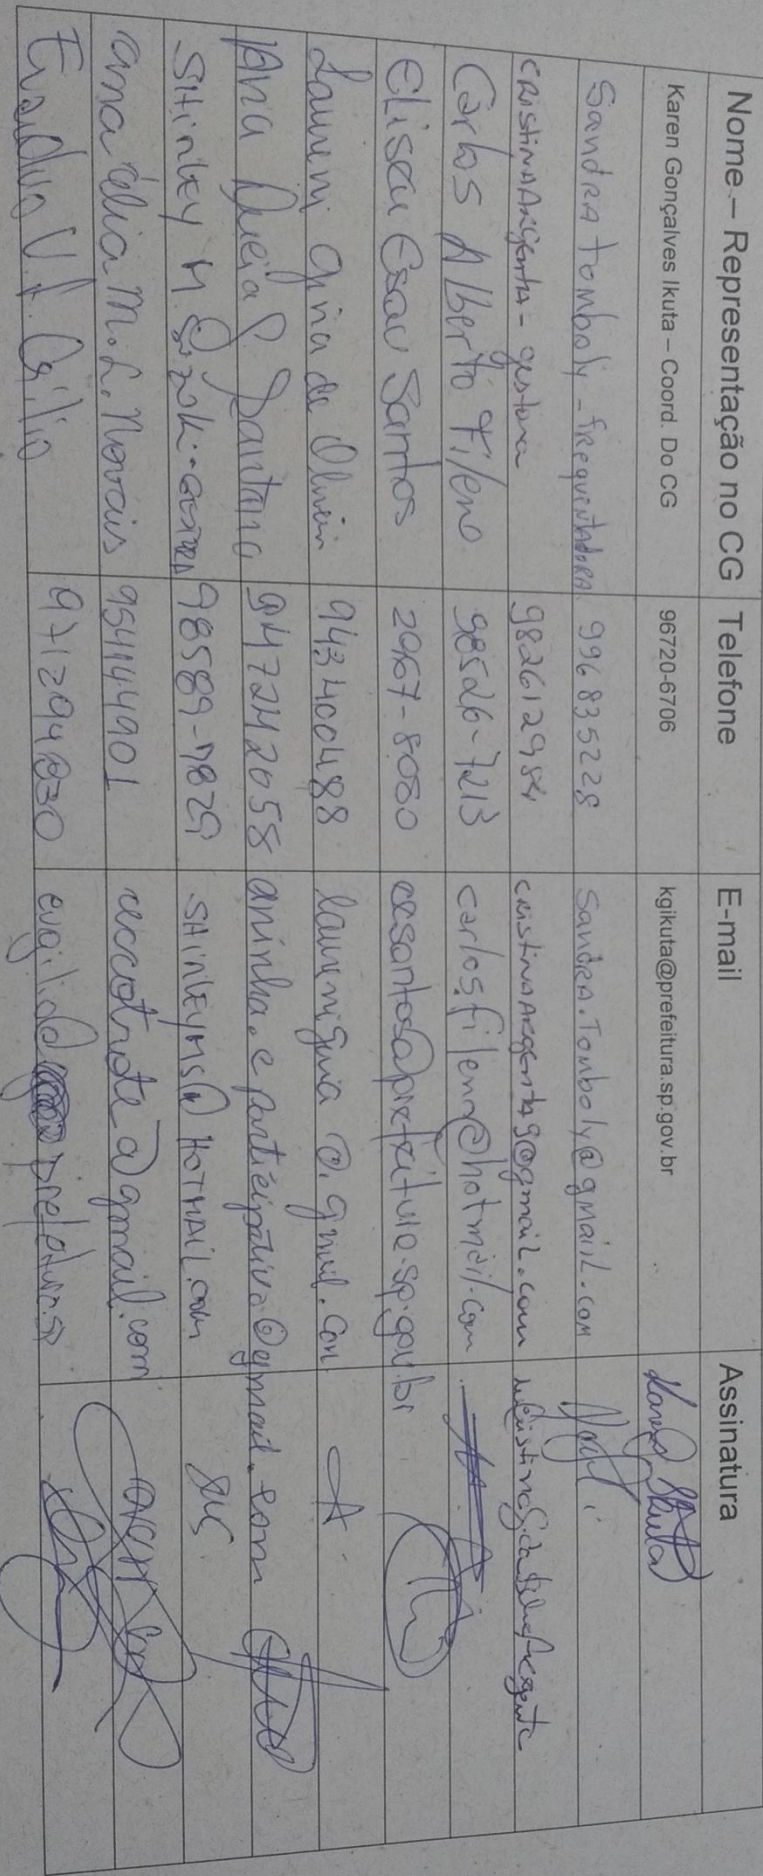 Nome – Representação no CG Telefone E-mail Assinatura
Karen Gonçalves Ikuta – Coord. Do CG 96720-6706 kgikuta@prefeitura.sp.gov.br
Sandra Tomboly - frequentadora 996835228 Sandra.Tomboly@gmail.com
Cristina Argenta - gestora 982612984 cristinaargenta9@gmail.com
Carlos Alberto Fileno 98526-7213 carlos.fileno@hotmail.com
Eliseu Esau Santos 2967-8080 eesantos@prefeitura.sp.gov.br
Laureni Gina de Oliveira 943400488 @.gmail.com
Ana Queja Santana 947242058 aninha.e participativa@gmail.com
SHirley M. Suzuki 98589-7829 SHirleyms@HOTMAIL.com
ana Célia M. L. Novais 954144901 @gmail.com
971294830